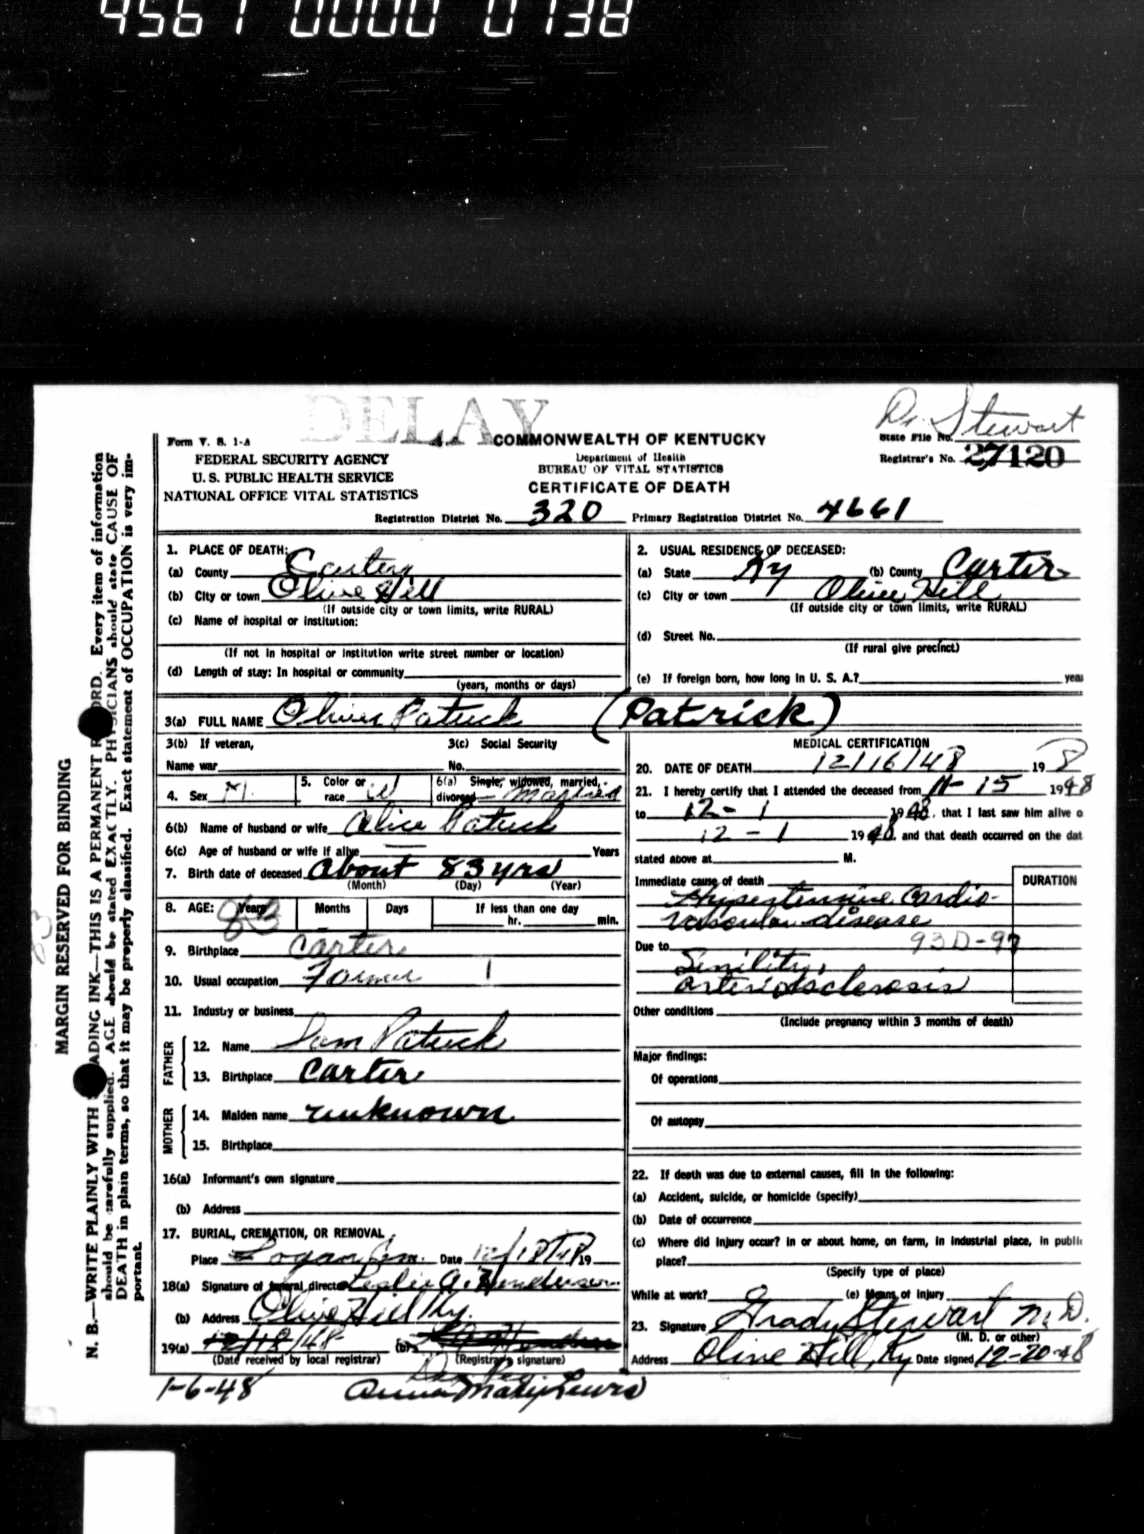 4561 0000 0138
DELAY
Dr. Stewart
Form V. S. 1-A
FEDERAL SECURITY AGENCY
U. S. PUBLIC HEALTH SERVICE
NATIONAL OFFICE VITAL STATISTICS
COMMONWEALTH OF KENTUCKY
Department of Health
BUREAU OF VITAL STATISTICS
CERTIFICATE OF DEATH
State File No.
Registrar's No. 27120
Registration District No. 320 Primary Registration District No. 4661
1. PLACE OF DEATH:
(a) County Carter
(b) City or town Olive Hill
(If outside city or town limits, write RURAL)
(c) Name of hospital or institution:
(If not in hospital or institution write street number or location)
(d) Length of stay: In hospital or community
(years, months or days)
2. USUAL RESIDENCE OF DECEASED:
(a) State Ky (b) County Carter
(c) City or town Olive Hill
(If outside city or town limits, write RURAL)
(d) Street No.
(If rural give precinct)
(e) If foreign born, how long in U. S. A.? year
3(a) FULL NAME Oliver Patrick (Patrick)
3(b) If veteran, 3(c) Social Security
Name war No.
4. Sex M. 5. Color or race W 6(a) Single, widowed, married, divorced Married
6(b) Name of husband or wife Alice Patrick
6(c) Age of husband or wife if alive — Years
7. Birth date of deceased about 83 yrs
(Month) (Day) (Year)
8. AGE: Years 83 Months Days If less than one day
hr. min.
9. Birthplace Carter
10. Usual occupation Farmer
11. Industry or business
FATHER
12. Name Sam Patrick
13. Birthplace Carter
MOTHER
14. Maiden name unknown
15. Birthplace
16(a) Informant's own signature
(b) Address
17. BURIAL, CREMATION, OR REMOVAL
Place Logan Cem. Date 12/18/48 19
18(a) Signature of funeral director Leslie A. Henderson
(b) Address Olive Hill Ky.
19(a) 12/18/48 (b)
(Date received by local registrar) (Registrar's signature)
1-6-48 Anna Mary Lewis
MEDICAL CERTIFICATION
20. DATE OF DEATH 12/16/48 19 8
21. I hereby certify that I attended the deceased from 11-15 1948
to 12-1 1948, that I last saw him alive o
12-1 19 and that death occurred on the dat
stated above at M.
Immediate cause of death
Hypertensive Cardio-
vascular disease
DURATION
Due to 93D-97
Senility,
arteriosclerosis
Other conditions
(Include pregnancy within 3 months of death)
Major findings:
Of operations
Of autopsy
22. If death was due to external causes, fill in the following:
(a) Accident, suicide, or homicide (specify)
(b) Date of occurrence
(c) Where did injury occur? In or about home, on farm, in industrial place, in public
place?
(Specify type of place)
While at work? (e) Means of injury
23. Signature Grady Stewart M.D.
(M. D. or other)
Address Olive Hill, Ky Date signed 12-20-48
MARGIN RESERVED FOR BINDING
N. B.—WRITE PLAINLY WITH ADING INK—THIS IS A PERMANENT R ORD. Every item of information
should be carefully supplied. AGE should be stated EXACTLY. PHYSICIANS should state CAUSE OF
DEATH in plain terms, so that it may be properly classified. Exact statement of OCCUPATION is very im-
portant.
83